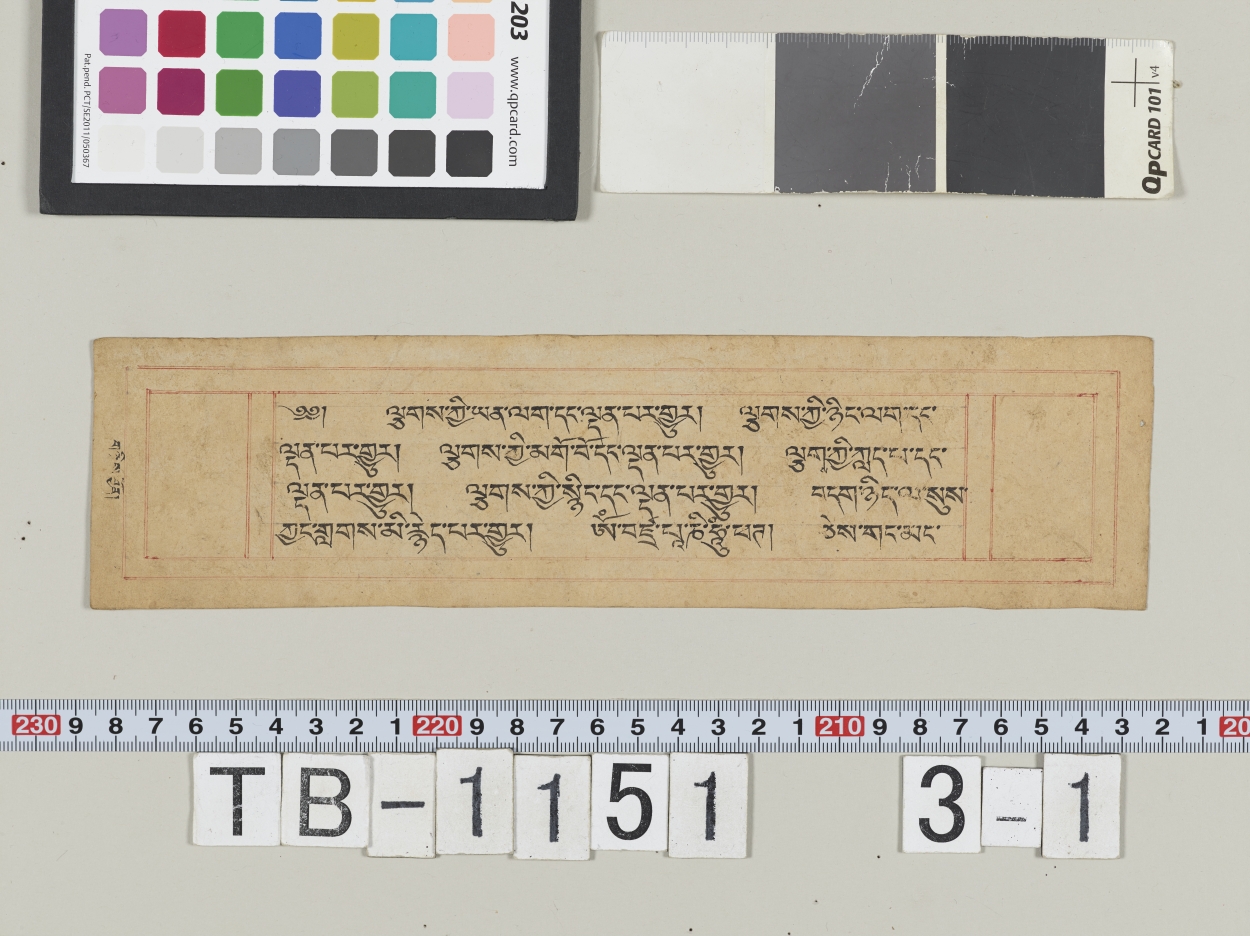 203
www.qpcard.com
Pat.pend.PCT/SE2011/050367
QPCARD 101 v4
༄༅། ལྕུགས་ཀྱི་ཡན་ལག་དང་ལྡན་པར་གྱུར། ལྕུགས་ཀྱི་ཉིང་ལག་དང་
ལྡན་པར་གྱུར། ལྕུགས་ཀྱི་མགོ་བོ་དང་ལྡན་པར་གྱུར། ལྕུགྀ་ཀྱི་ཀླད་པ་དང་
ལྡན་པར་གྱུར། ལྕུགས་ཀྱི་སྙིང་དང་ལྡན་པར་གྱུར། བདག་ཉིད་ལ་སུས་
ཀྱང་གླགས་མི་རྙེད་པར་གྱུར། ཨོཾ་བཛྲ་པཱ་ཎི་ཧཱུྃ་ཕཊ། ཅེས་གང་ཨང་
230 9 8 7 6 5 4 3 2 1 220 9 8 7 6 5 4 3 2 1 210 9 8 7 6 5 4 3 2 1 20
TB-1151 3-1